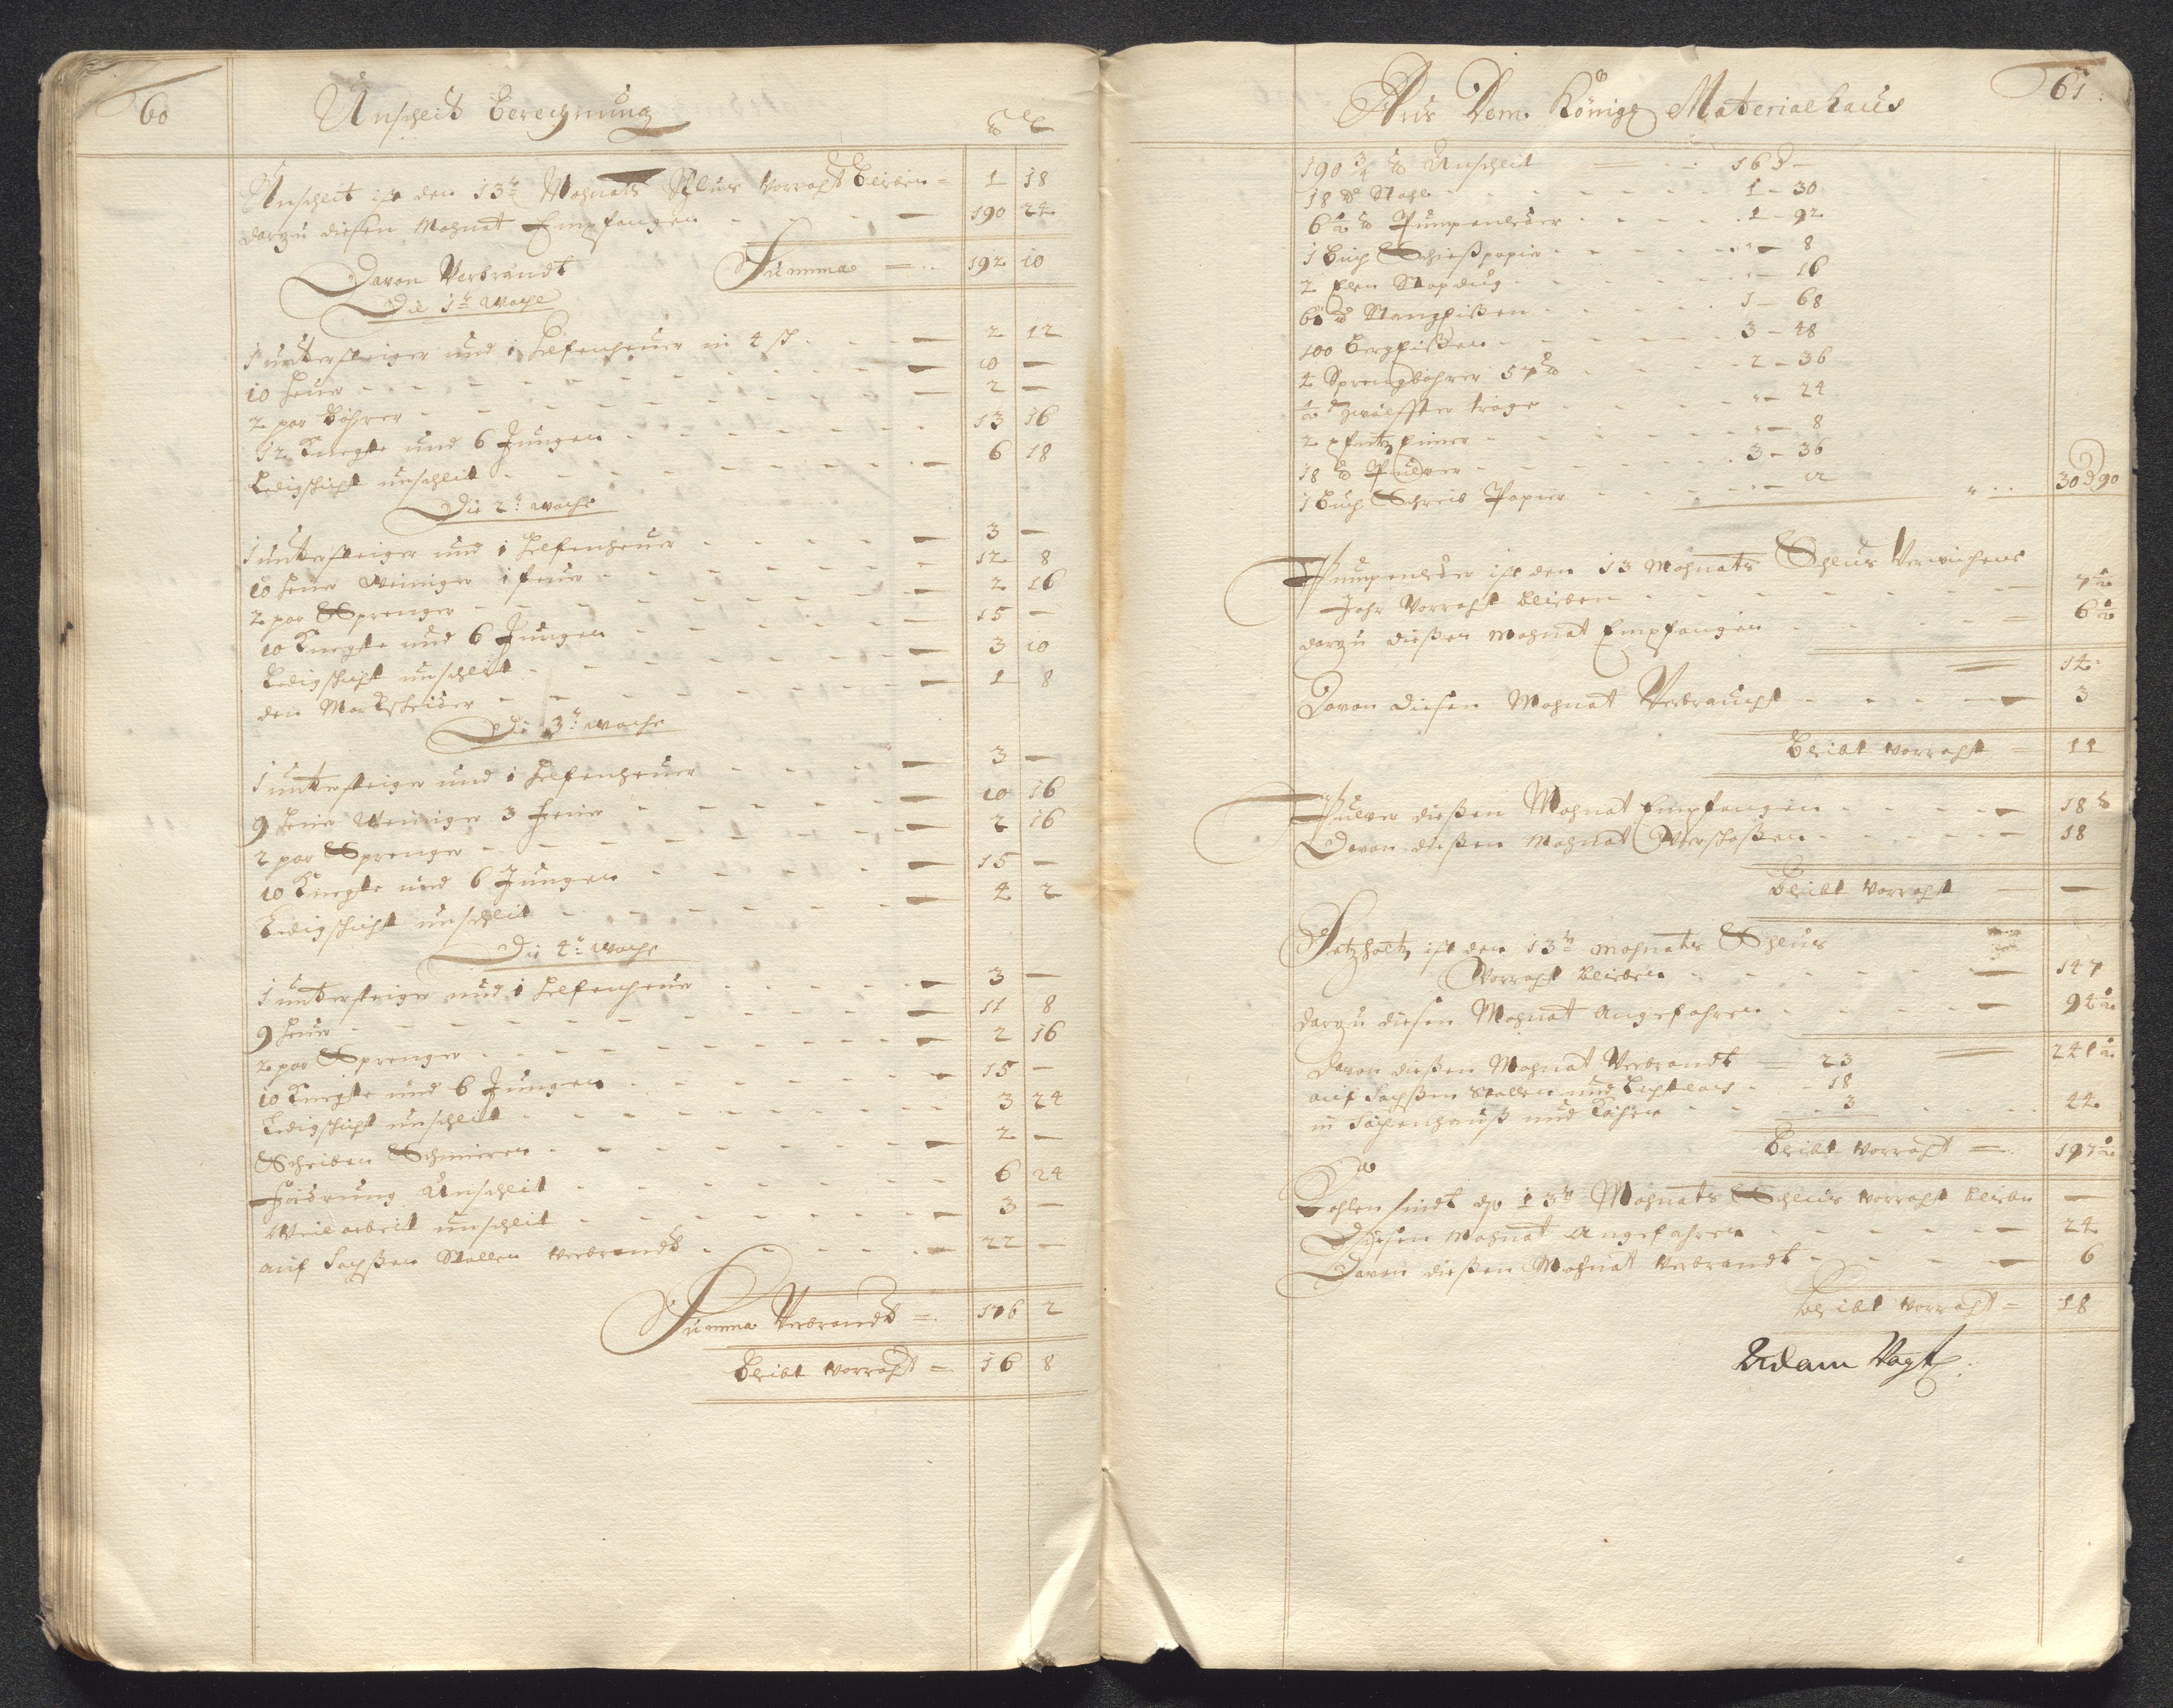 60
Unschleit Berechnung
℔ L
Unschleit ist den 13tn Mohnats Schlus Vorraht blieben = 1 18
darzu diesen Mohnat Empfangen - - - 190 24
Summa = .. 192 10
Davon Verbrandt
Die 1te Woche
1 untersteiger und 1 Helfenheuer in 4 sch - - - 2 12
10 Heuer - - - 10 —
2 par Böhrer - - - 2 —
12 Knechte und 6 Jungen - - - 13 16
Ledigschicht unschleit - - - 6 18
Die 2te woche
1 untersteiger und 1 Helfenheuer - - - 3 —
10 Heuer Weiniger 1 feuer - - - 12 8
2 par Sprenger - - - 2 16
10 Knechte und 6 Jungen - - - 15 —
Ledigschicht unschleit - - - 3 10
den Markscheider - - - 1 8
Die 3te woche
1 untersteiger und 1 Helfenheuer - - - 3 —
9 Heuer Weiniger 3 feuer - - - 10 16
2 par Sprenger - - - 2 16
10 Knechte und 6 Jungen - - - 15 —
Ledigschicht unschleit - - - 4 2
Die 4te woche
1 untersteiger und 1 Helfenheuer - - - 3 —
9 Heuer - - - 11 8
2 par Sprenger - - - 2 16
10 Knechte und 6 Jungen - - - 15 —
Ledigschicht unschleit - - - 3 24
Scheiben Schmieren - - - 2 —
födrung Unschleit - - - 6 24
Weil arbeit unschleit - - - 3 —
auf Sachßen Stollen verbrandt - - - 22 —
Summa Verbrandt = 176 2
Bleibt vorraht = 16 8
61
Aus Dem Königl Materialhaus
190 3/4 ℔ Unschleit - - - 16 d —
18 ℔ Stahl - - - 1 — 30
6 1/2 ℔ Pumpenleder - - - 1 — 92
1 Buch Schießpapir - - - " — 8
2 Elen - - - " — 16
60 ℔ - - - 1 — 68
100 - - - 3 — 48
4 Sprengböhrer 57 ℔ - - - 2 — 36
1/2 zwölffter tröge - - - " — 24
2 - - - " — 8
18 ℔ Pulver - - - 3 — 36
1 Buch Schreib Papier - - - " — 12
" .. 30 d 90
Pumpenleder ist den 13 Mohnats Schlus Verwichens
Jahr Vorraht blieben - - - 7 1/2
darzu dießen Mohnat Empfangen - - - 6 1/2
14
Davon diesen Mohnat Verbraucht - - - 3
Bleibt vorraht = 11
Pulver dießen Mohnat Empfangen - - - 18 ℔
Davon dießen Mohnat Verschoßen - - - 18
Bleibt vorraht — —
Setzholtz ist den 13tn Mohnats Schlus
Vorraht blieben - - - 147
darzu diesen Mohnat Angefahren - - - 94 1/2
241 1/2
Davon dießen Mohnat Verbrandt = 23
auf Sachßen Stollen und - - 18
in und - - 3 44
Bleibt vorraht = 197 1/2
Kohlen sindt 13tn Mohnats Schlus vorraht blieben —
Diesen Mohnat Angefahren - - - 24
Davon dießen Mohnat verbrandt - - - 6
Bleibt vorraht = 18
Adam Vogt